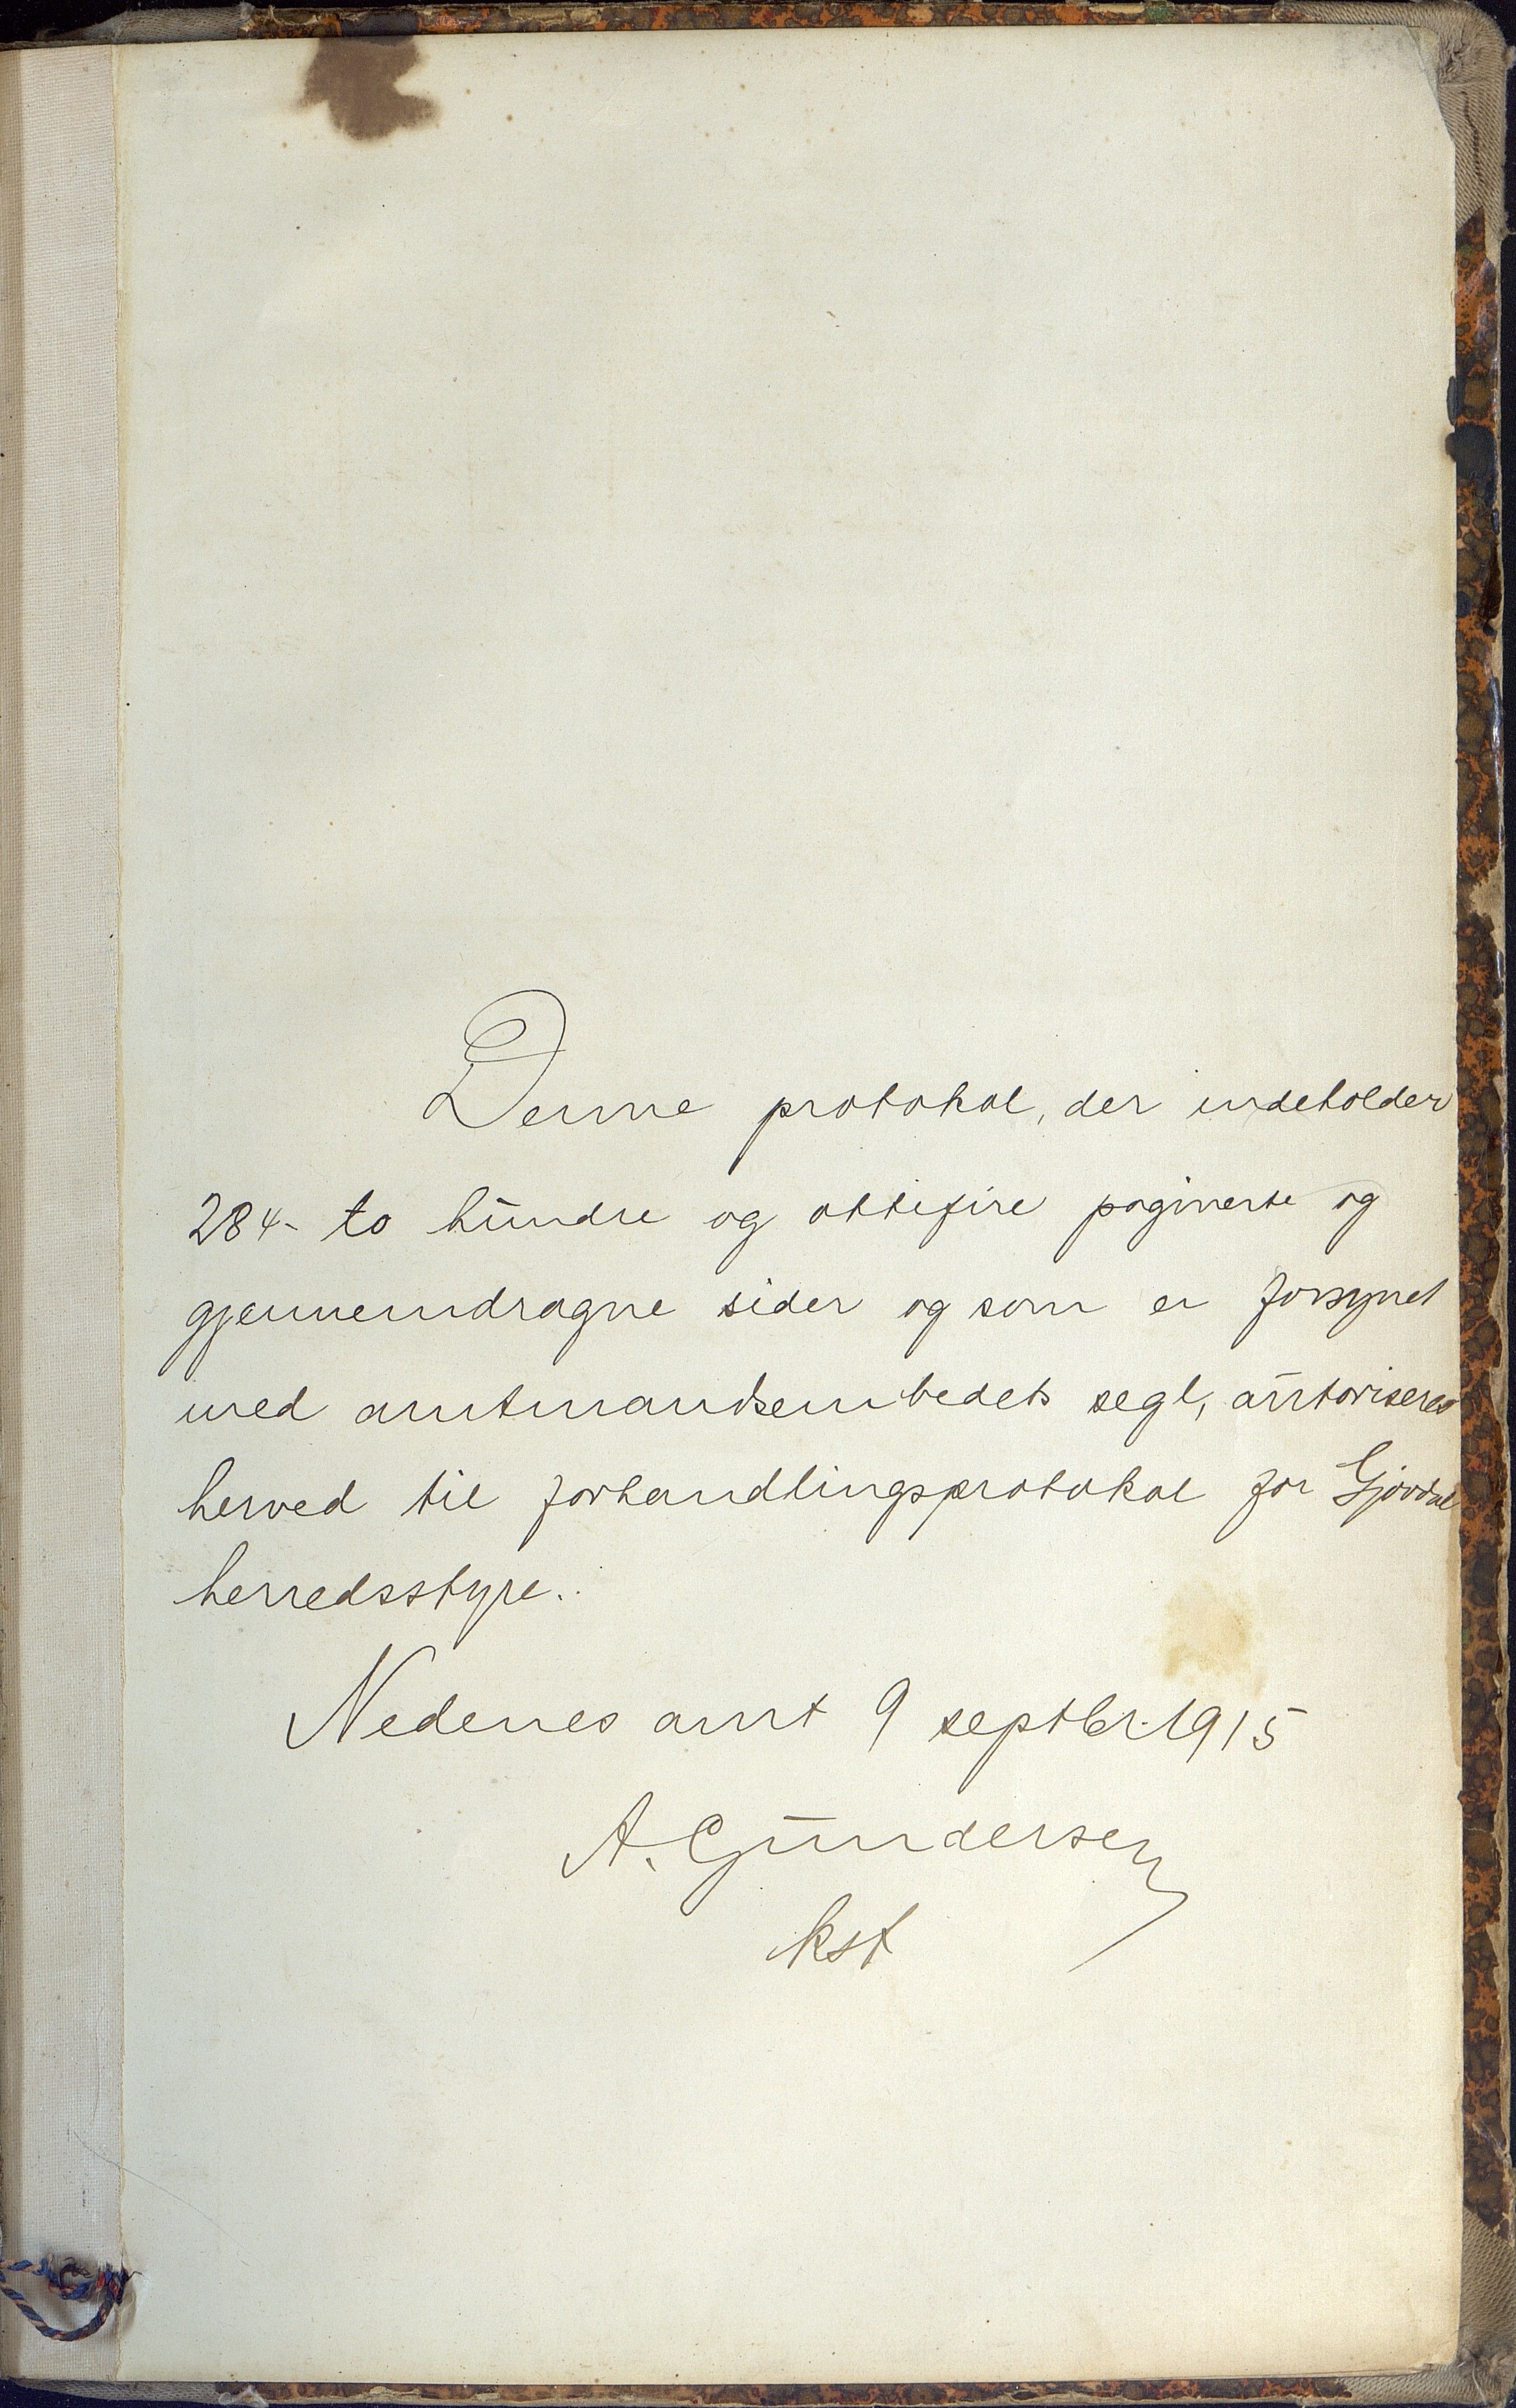 Denne protokol, der indeholder
284 - to hundre og ottifire paginerte og
gjennemdragne sider og som er forsynet
med amtmandsembedets segl, autoriseres
herved til forhandlingsprotokol for Gjøvdal
herredsstyre.
Nedenes amt 9 septbr. 1915
A. Gundersen
kst